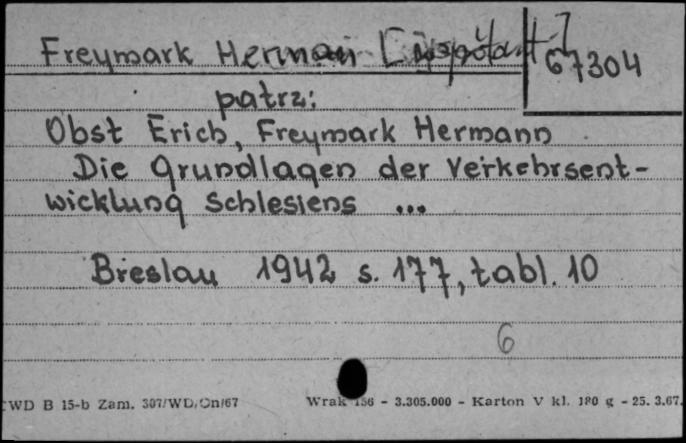 Freymark Herman [współaut.]
67304
patrz:
Obst Erich, Freymark Hermann
Die Grundlagen der Verkehrsent-
wicklung Schlesiens ...
Breslau 1942 s. 177, tabl. 10
6
WD B 15-b Zam. 307/WD/On/67 Wrak 156 - 3.305.000 - Karton V kl. 180 g - 25. 3.67.